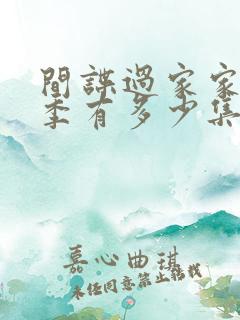 間諜過家家
季有多少集
嘉心曲琪
未经同意禁止转载